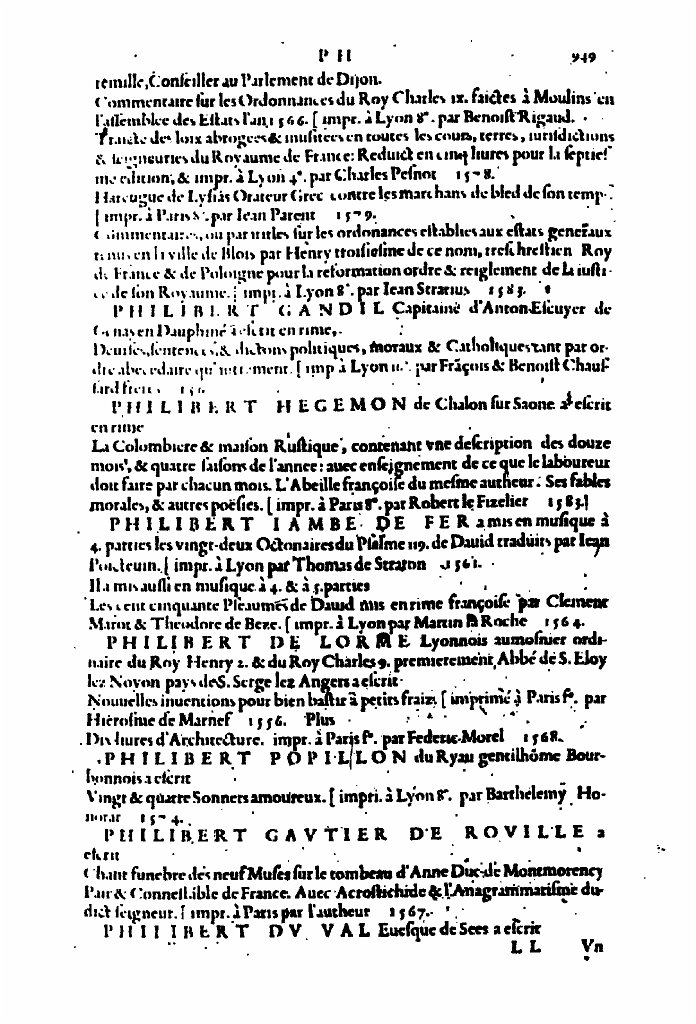 P H 949
remille, Conſeiller au Parlement de Dijon.
Commentaire ſur les Ordonnances du Roy Charles ix. faictes à Moulins en
l'aſſemblee des Eſtats l'an 1566. [ impr. à Lyon 8°. par Benoiſt Rigaud.
Traicte des loix abrogees & inuſitees en toutes les cours, terres, iuriſdictions
& ſeigneuries du Royaume de France: Reduict en cinq liures pour la ſeptieſ
me edition, & impr. à Lyon 4°. par Charles Peſnot 1578.
Harengue de Lyſias Orateur Grec contre les marchans de bled de ſon temps.
[ impr. à Paris 8°. par Iean Parent 1579.
Commentaires, ou par titles ſur les ordonnances eſtablies aux eſtats generaux
tenus en la ville de Blois par Henry troiſieſme de ce nom, treſchreſtien Roy
de France & de Poloigne pour la reformation ordre & reiglement de la iuſti-
ce de ſon Royaume. [ impr. à Lyon 8°. par Iean Stratius 1583.
PHILIBERT GANDIL Capitaine d'Anton Eſcuyer de
en Dauphiné a eſcrit en rime,
Deuiſes, ſentences, & dictons politiques, moraux & Catholiques tant par or-
dre abecedaire qu' [ imp à Lyon par Frãçois & Benoiſt Chauſ
ſard freres
PHILIBERT HEGEMON de Chalon ſur Saone a eſcrit
en rime
La Colombiere & maiſon Ruſtique, contenant vne deſcription des douze
mois, & quatre ſaiſons de l'annee: auec enſeignement de ce que le laboureur
doit faire par chacun mois. L'Abeille françoiſe du meſme autheur. Ses fables
morales, & autres poëſies. [ impr. à Paris 8°. par Robert le Fizelier 1583.]
PHILIBERT IAMBE DE FER a mis en muſique à
4. parties les vingt-deux Octonaires du Pſalme 119. de Dauid traduits par Iean
Poicteuin. [ impr. à Lyon par Thomas de Straton 1561.
Il a mis auſſi en muſique à 4. & à 5. parties
Les cent cinquante Pſeaumes de Dauid mis en rime françoiſe par Clement
Marot & Theodore de Beze. [ impr. à Lyon par Martin la Roche 1564.
PHILIBERT DE LORME Lyonnois aumoſnier ordi-
naire du Roy Henry 2. & du Roy Charles 9. premierement Abbé de S. Eloy
lez Noyon pays de S. Serge lez Angers a eſcrit
Nouuelles inuentions pour bien baſtir à petits fraiz. [ imprimé à Paris f°. par
Hieroſme de Marnef 1556. Plus
Dix liures d'Architecture. impr. à Paris f°. par Federic Morel 1568.
PHILIBERT POPILLON du Ryau gentilhõme Bour-
bonnois a eſcrit
Vingt & quatre Sonnets amoureux. [ impri. à Lyon 8°. par Barthelemy Ho-
norat 1574.
PHILIBERT GAVTIER DE ROVILLE a
eſcrit
Chant funebre des neuf Muſes ſur le tombeau d'Anne Duc de Montmorency
Pair & Conneſtable de France. Auec Acroſtichide & l'Anagrammatiſme du-
dict ſeigneur. [ impr. à Paris par l'autheur 1567.
PHILIBERT DV VAL Eueſque de Sees a eſcrit
L L Vn